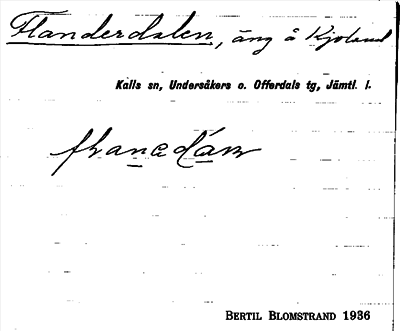 Flanderdalen, äng å Kjoland
Kalls sn, Undersåkers o. Offerdals tg, Jämtl. l.
BERTIL BLOMSTRAND 1936